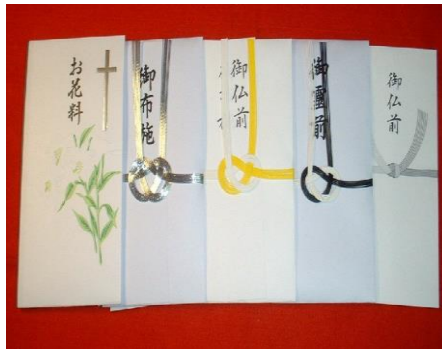 お花料
御布施
御仏前
御霊前
御仏前